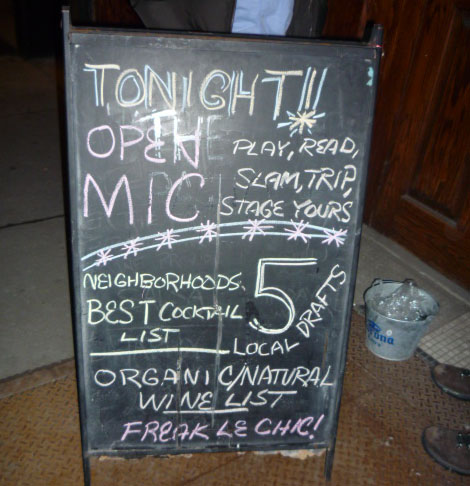 TONIGHT!!
OPEN
MIC
PLAY, READ,
SLAM, TRIP,
STAGE YOURS
NEIGHBORHOODS
BEST COCKTAIL
LIST
5
LOCAL DRAFTS
ORGANIC/NATURAL
WINE LIST
FREAK LE CHIC!